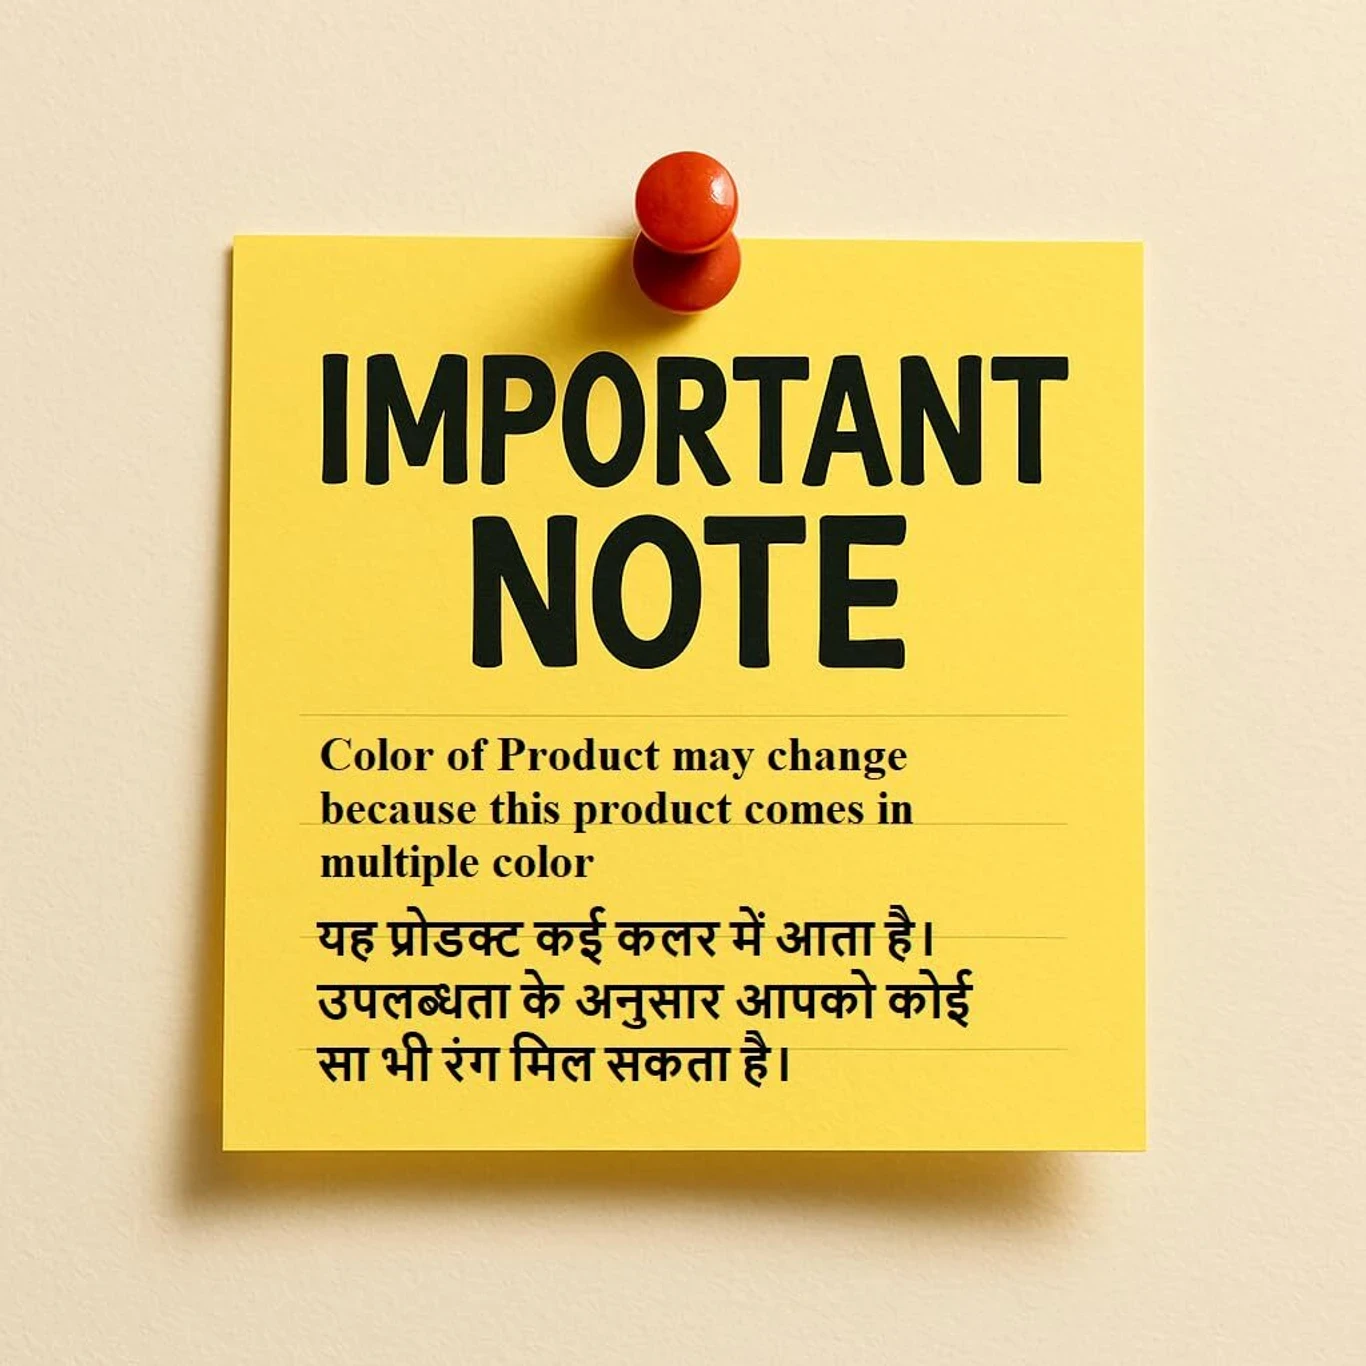 IMPORTANT
NOTE
Color of Product may change
because this product comes in
multiple color
यह प्रोडक्ट कई कलर में आता है।
उपलब्धता के अनुसार आपको कोई
सा भी रंग मिल सकता है।